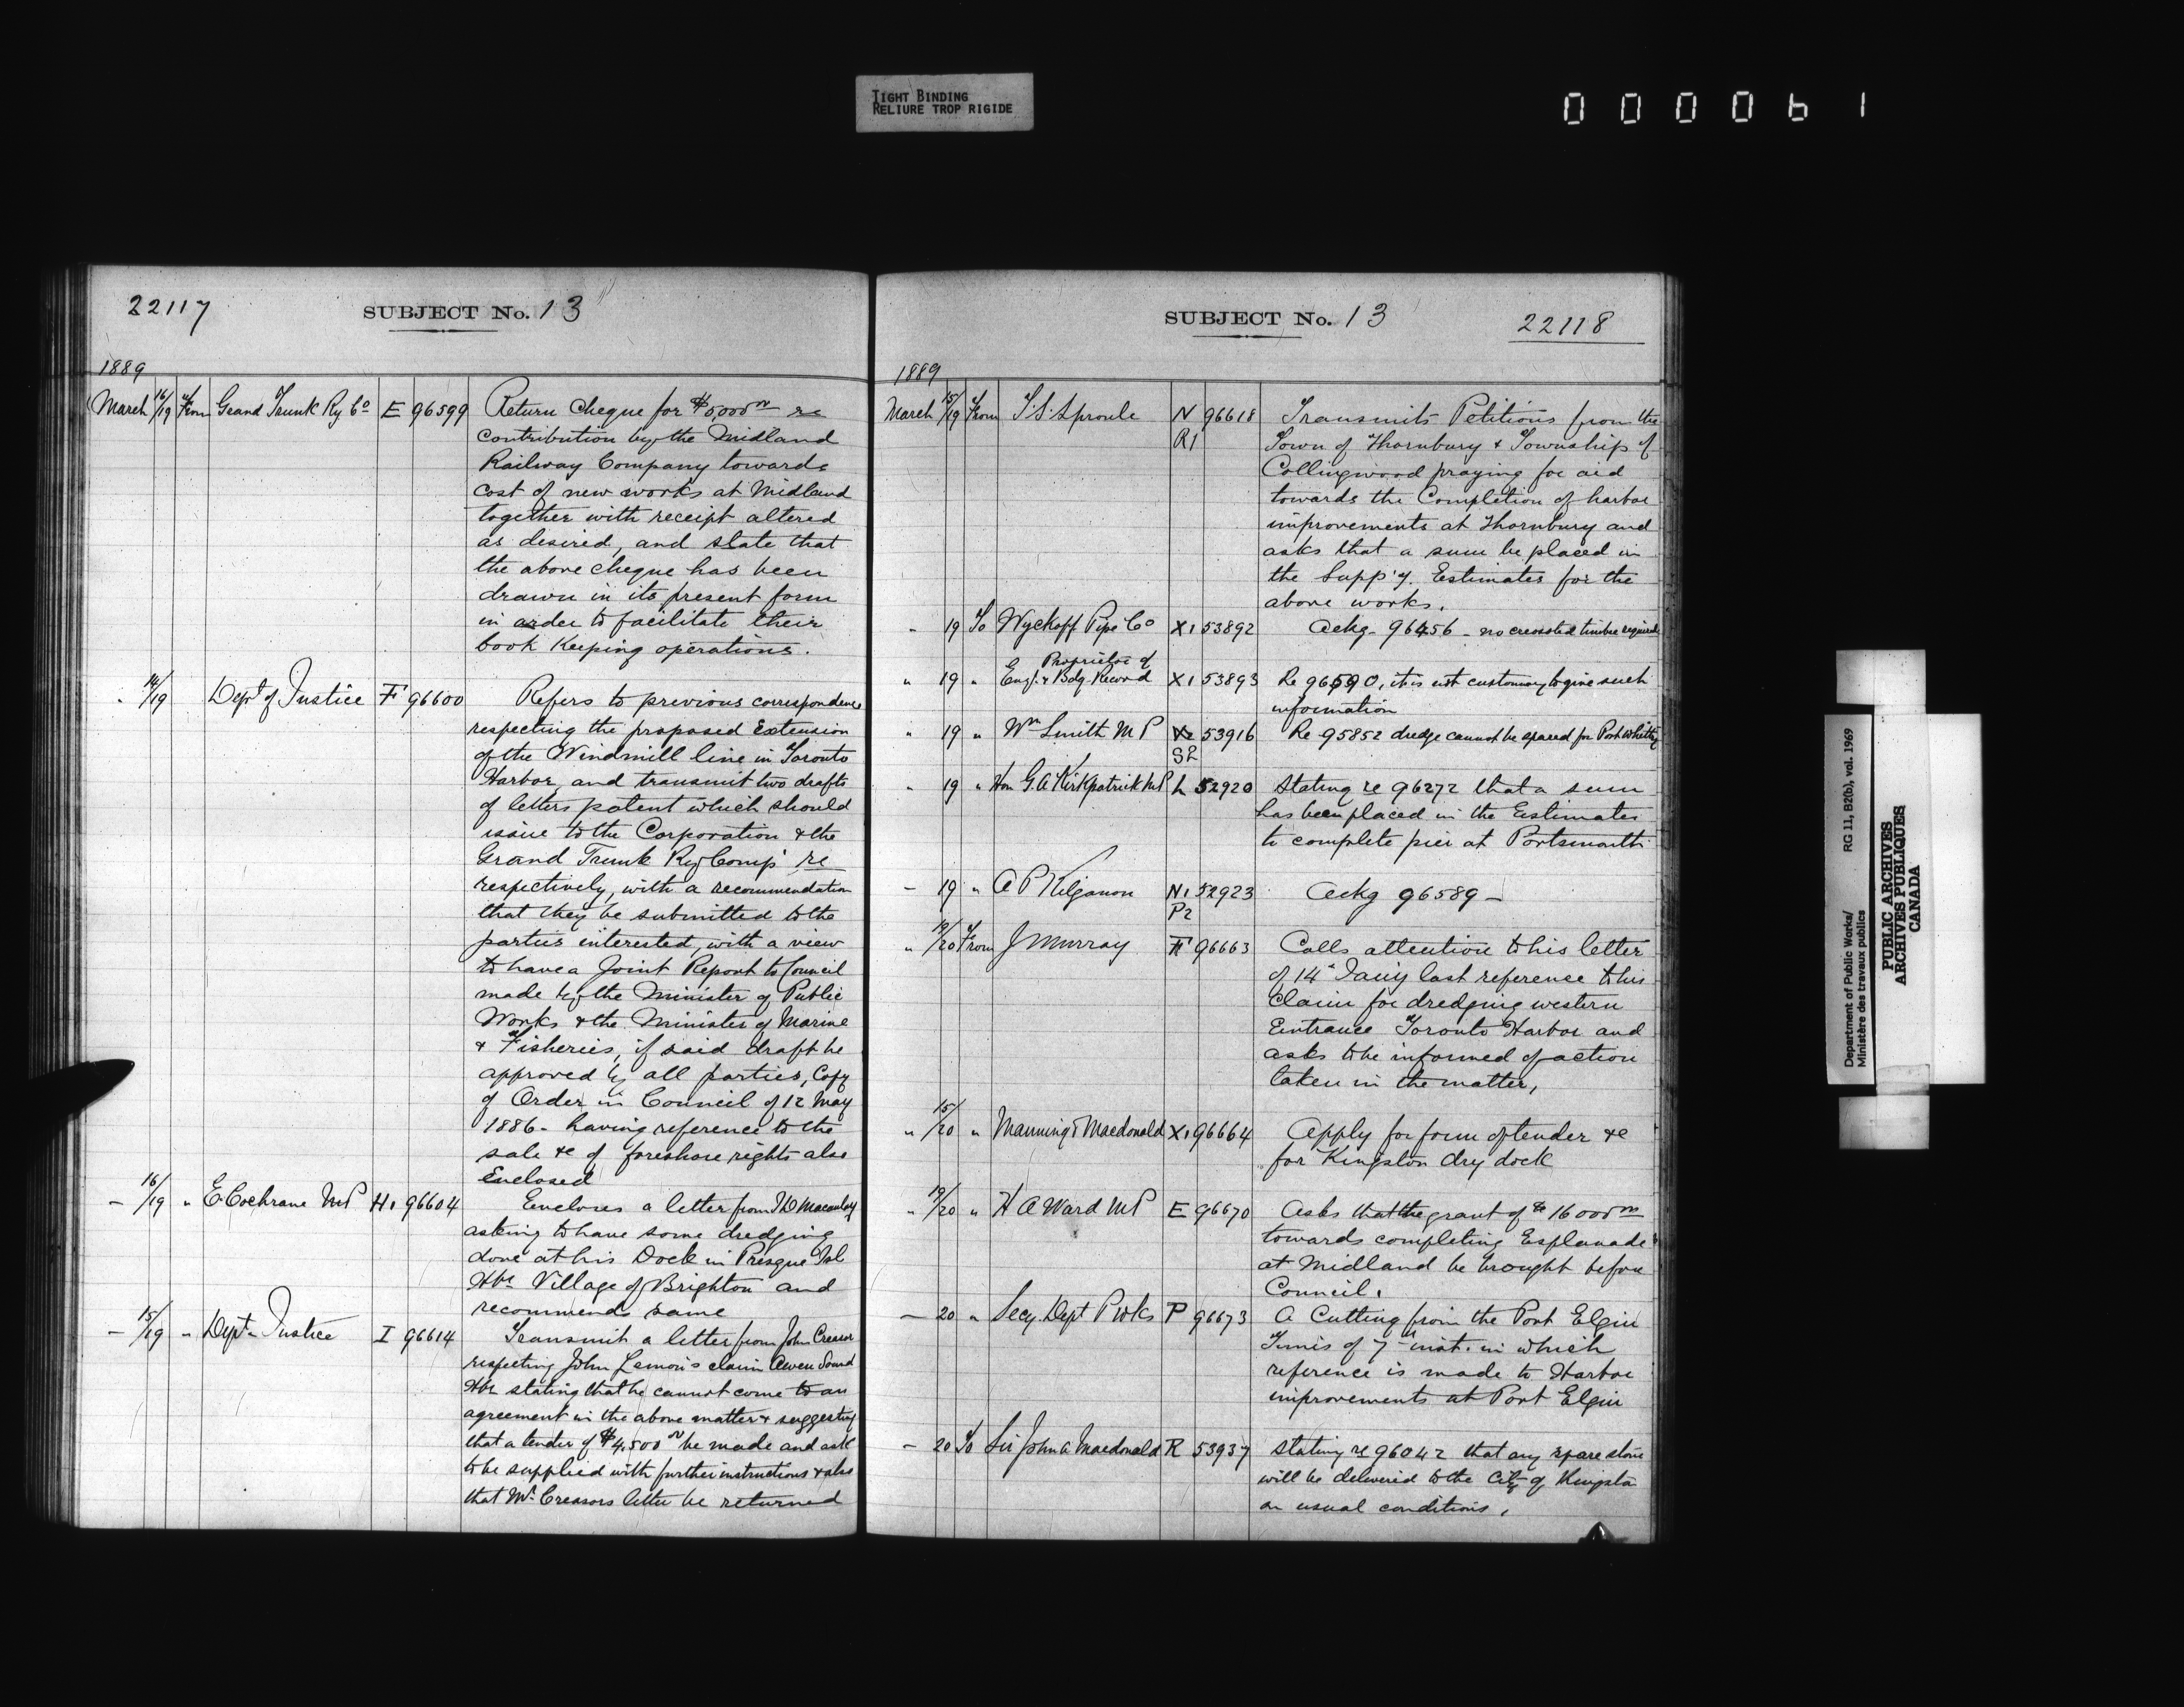 TIGHT BINDING
RELIURE TROP RIGIDE
000061
22117
SUBJECT No. 13
1889
March 16/19 From Grand Trunk Ry Co E 96599 Return Cheque for $5000 00 re
contribution by the Midland
Railway Company towards
cost of new works at Midland
together with receipt altered
as desired, and state that
the above cheque has been
drawn in its present form
in order to facilitate their
book keeping operations.
" 14/19 Dept of Justice F 96600 Refers to previous correspondence
respecting the proposed Extension
of the Windmill line in Toronto
Harbor, and transmit two drafts
of letters patent which should
issue to the Corporation & the
Grand Trunk Ry Comp re
respectively, with a recommendation
that they be submitted to the
parties interested, with a view
to have a Joint Report to Council
made by the Minister of Public
Works & the Minister of Marine
& Fisheries, if said draft be
approved by all parties, Copy
of Order in Council of 12 May
1886 - having reference to the
sale &c of foreshore rights also
Enclosed
— 16/19 " E Cochrane MP H1 96604 Encloses a letter from Macaulay
asking to have some dredging
done at his Dock in Presque Isl
Hbr Village of Brighton and
recommends same
— 15/19 " Dept Justice I 96614 Transmit a letter from John Creasor
respecting John Lemon's claim Owen Sound
Hbr stating that he cannot come to an
agreement in the above matter & suggesting
that a tender of $4,500 00 be made and ask
to be supplied with further instructions & also
that Mr Creasors letter be returned
SUBJECT No. 13
22118
1889
March 15/19 From T.S. Sproule N 96618 Transmits Petitions from the
R1 Town of Thornbury & Township of
Collingwood praying for aid
towards the Completion of harbor
improvements at Thornbury and
asks that a sum be placed in
the Supp'y. Estimates for the
above works.
" 19 To Wyckoff Pipe Co X1 53892 Ackg - 96456 - no creosoted timber required
Proprietor of
" 19 " Eng. & Bdg. Record X1 53893 Re 96590, it is not customary to give such
information
" 19 " Wm Smith MP X2 53916 Re 95852 dredge cannot be spared for Port Whitby
S2
" 19 " Hon G. A Kirkpatrick MP L 52920 Stating re 96272 that a sum
has been placed in the Estimates
to complete pier at Portsmouth
— 19 " A P Kilganon N1 52923 Ackg 96589 —
P2
" 19/20 From J Murray F 96663 Calls attention to his letter
of 14 Jany last reference to his
Claim for dredging western
Entrance Toronto Harbor and
asks to be informed of action
taken in the matter,
" 15/20 " Manning & Macdonald X1 96664 Apply for form of tender &c
for Kingston dry dock
" 19/20 " H A Ward MP E 96670 Asks that the grant of $16000 00
towards completing Esplanade
at Midland be brought before
Council.
— 20 " Secy. Dept P Wks P 96673 A Cutting from the Port Elgin
Times of 7th inst. in which
reference is made to Harbor
improvements at Port Elgin
— 20 To Sir John A Macdonald R 53937 Stating re 96042 that any spare stone
will be delivered to the City of Kingston
on usual conditions.
Department of Public Works/ RG 11, B2(b), vol. 1969
Ministère des travaux publics
PUBLIC ARCHIVES
ARCHIVES PUBLIQUES
CANADA